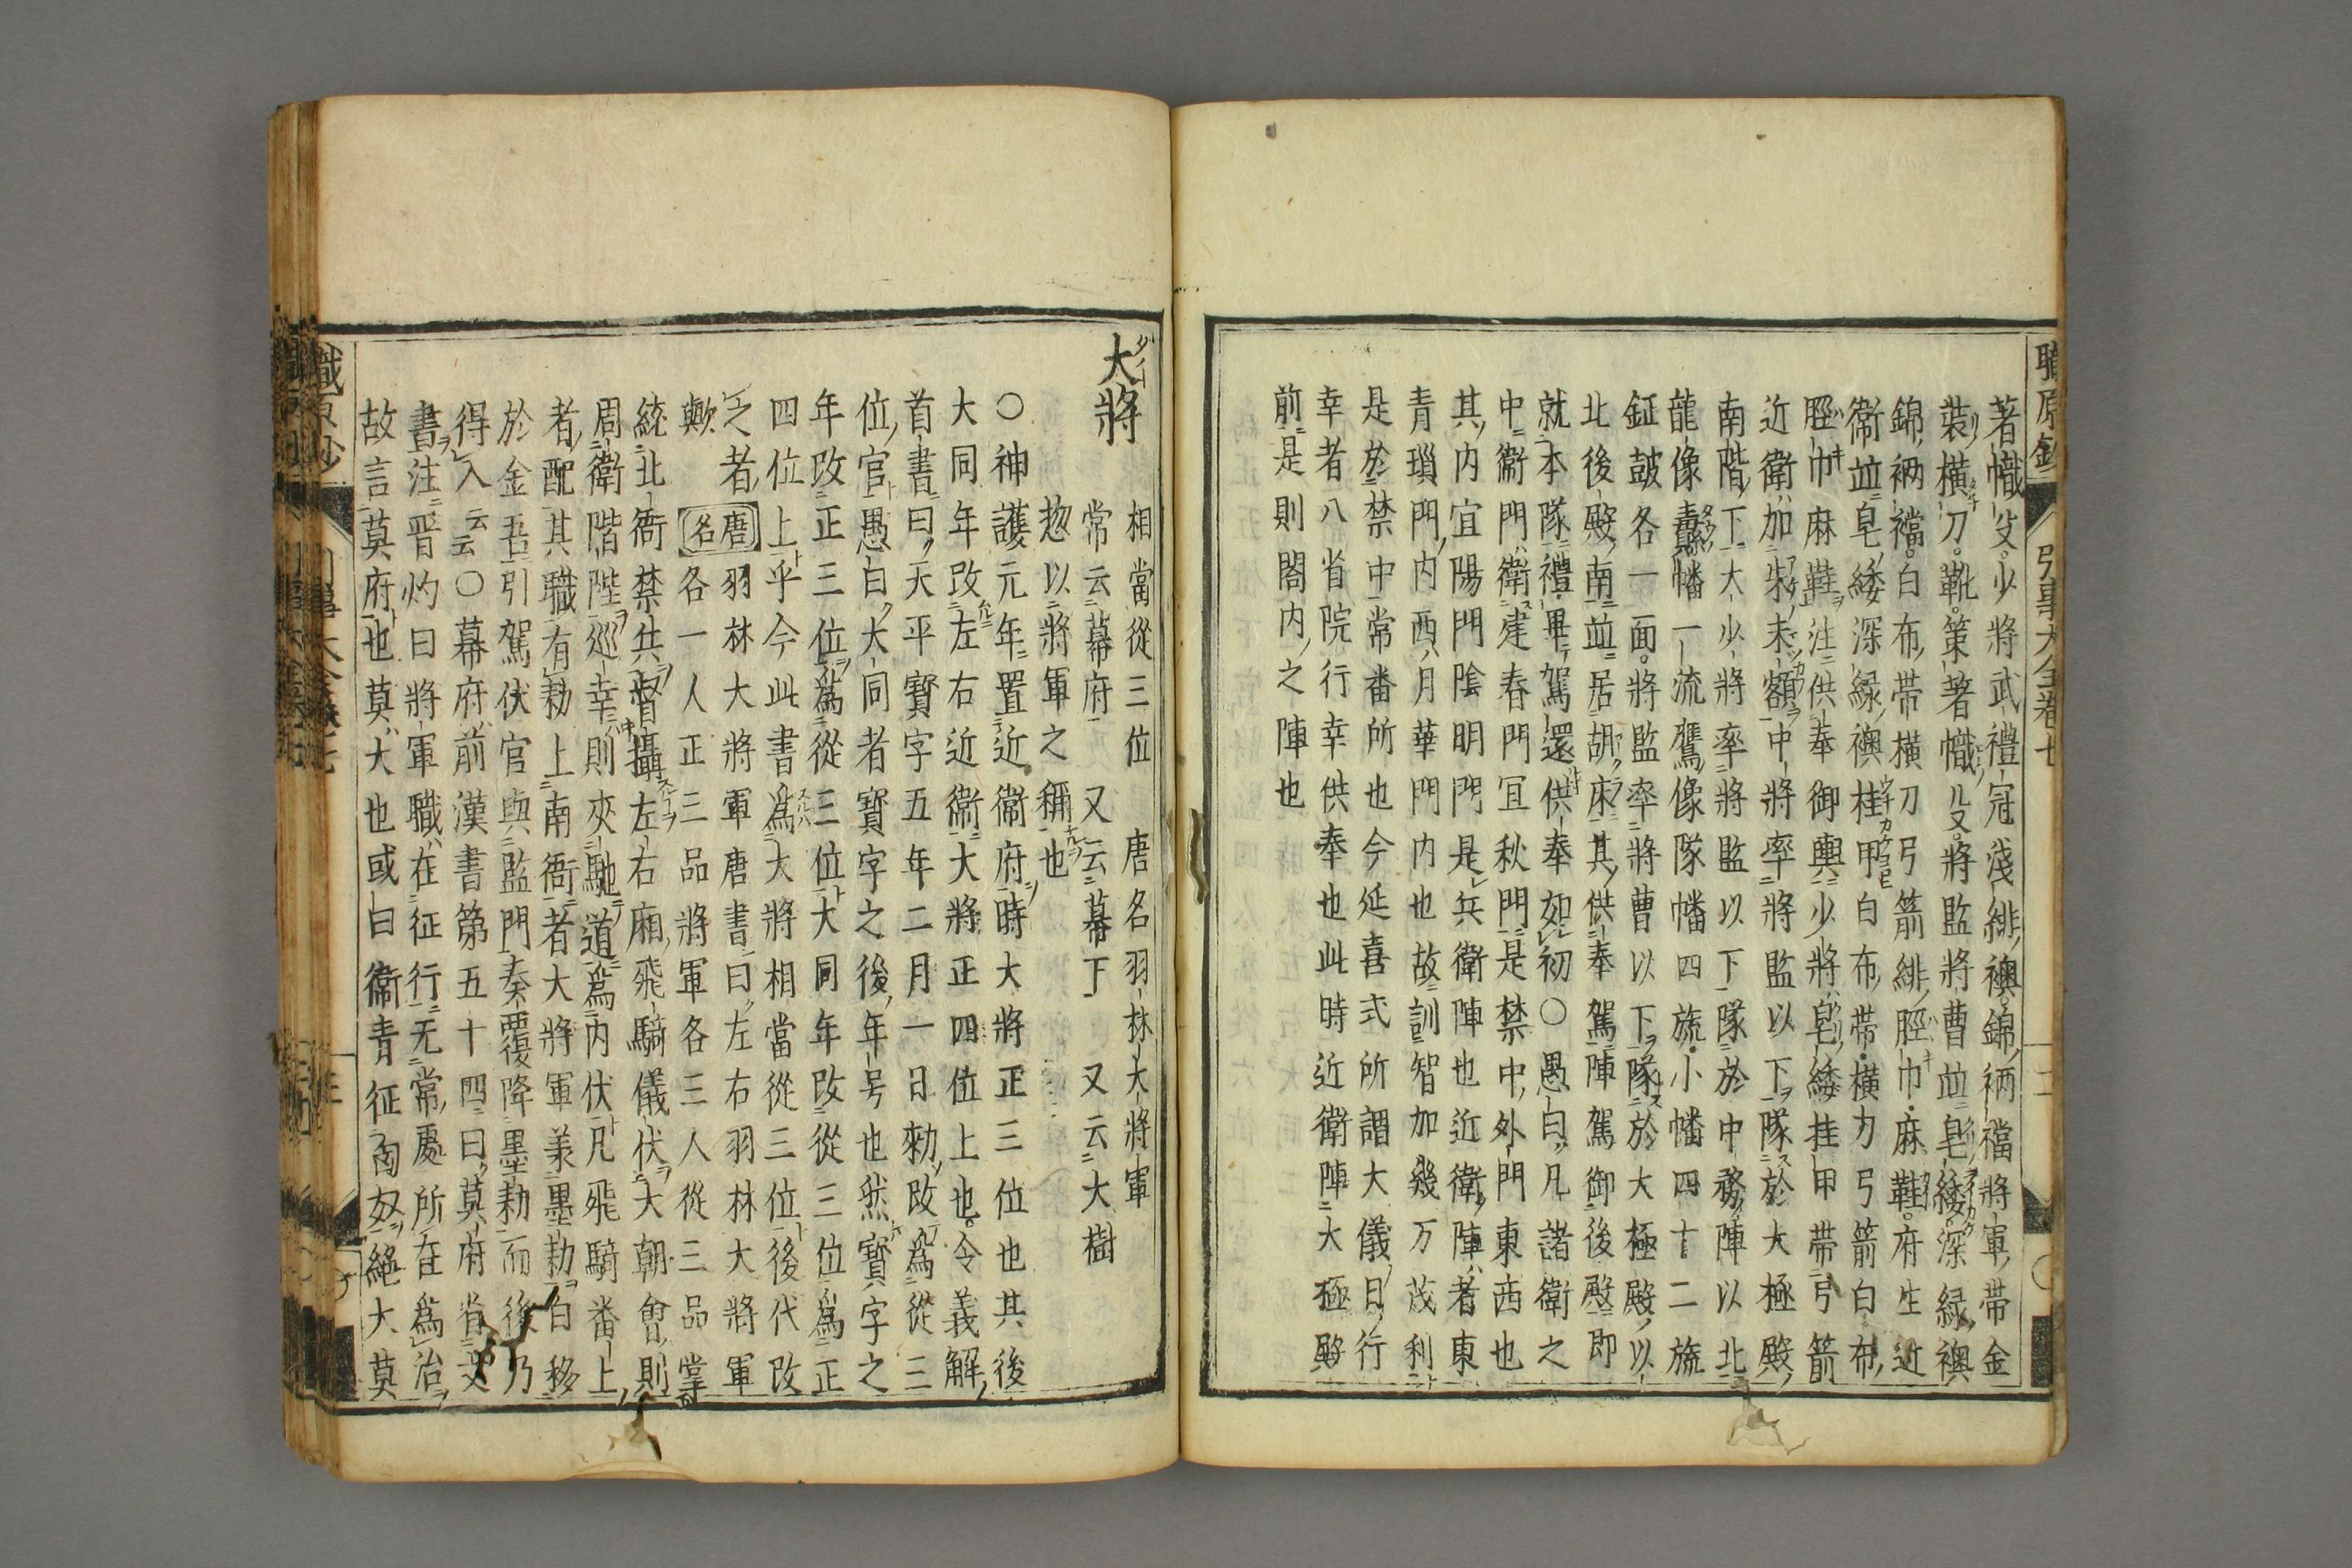 職原鈔 引事大全卷七
著幟殳少將武禮冠淺緋襖錦裲襠將軍帶金
裝橫刀靴策著幟殳將監將曹並皂緌深緑襖
錦裲襠白布帶橫刀弓箭緋脛巾麻鞋府生近
衞並皂緌深緑襖桂甲白布帶橫刀弓箭白布
脛巾麻鞋注供奉御輿少將皂緌挂甲帶弓箭
近衛加朱末額中將率將監以下隊於大極殿
南階下大少將率將監以下隊於中務陣以北
龍像纛幡一流鷹像隊幡四旒小幡四十二旒
鉦鼓各一面將監率將曹以下隊於大極殿以
北後殿南並居胡床其供奉駕陣駕御後殿即
就本隊禮畢駕還供奉如初○愚曰凡諸衛之
中衞門衛建春門宜秋門是禁中外門東西也
其内宜陽門陰明門是兵衛陣也近衛陣者東
青瑣門内西月華門内也故訓智加幾万茂利
是於禁中常番所也今延喜式所謂大儀日行
幸者八省院行幸供奉也此時近衛陣大極殿
前是則閤内之陣也
大將
相當從三位 唐名羽林大將軍
常云幕府 又云幕下 又云大樹
惣以將軍之稱也
○神護元年置近衞府時大將正三位也其後
大同年改左右近衞大將正四位上也令義解
首書曰天平寶字五年二月一日勅改為從三
位官愚曰大同者寶字之後年号也然寶字之
年改正三位為從三位大同年改從三位為正
四位上乎今此書為大將相當從三位後代改
之者 唐名 羽林大將軍唐書曰左右羽林大將軍
歟 各一人正三品將軍各三人從三品掌
統北衙禁兵督攝左右廂飛騎儀仗大朝會則
周衛階陛巡幸則夾馳道為内仗凡飛騎番上
者配其職有勅上南衙者大將軍羕墨勅白移
於金吾引駕仗官與監門奏覆降墨勅而後乃
得入云云○幕府前漢書第五十四曰莫府省文
書注晋灼曰將軍職在征行无常處所在為治
故言莫府也莫大也或曰衞青征匈奴絶大莫